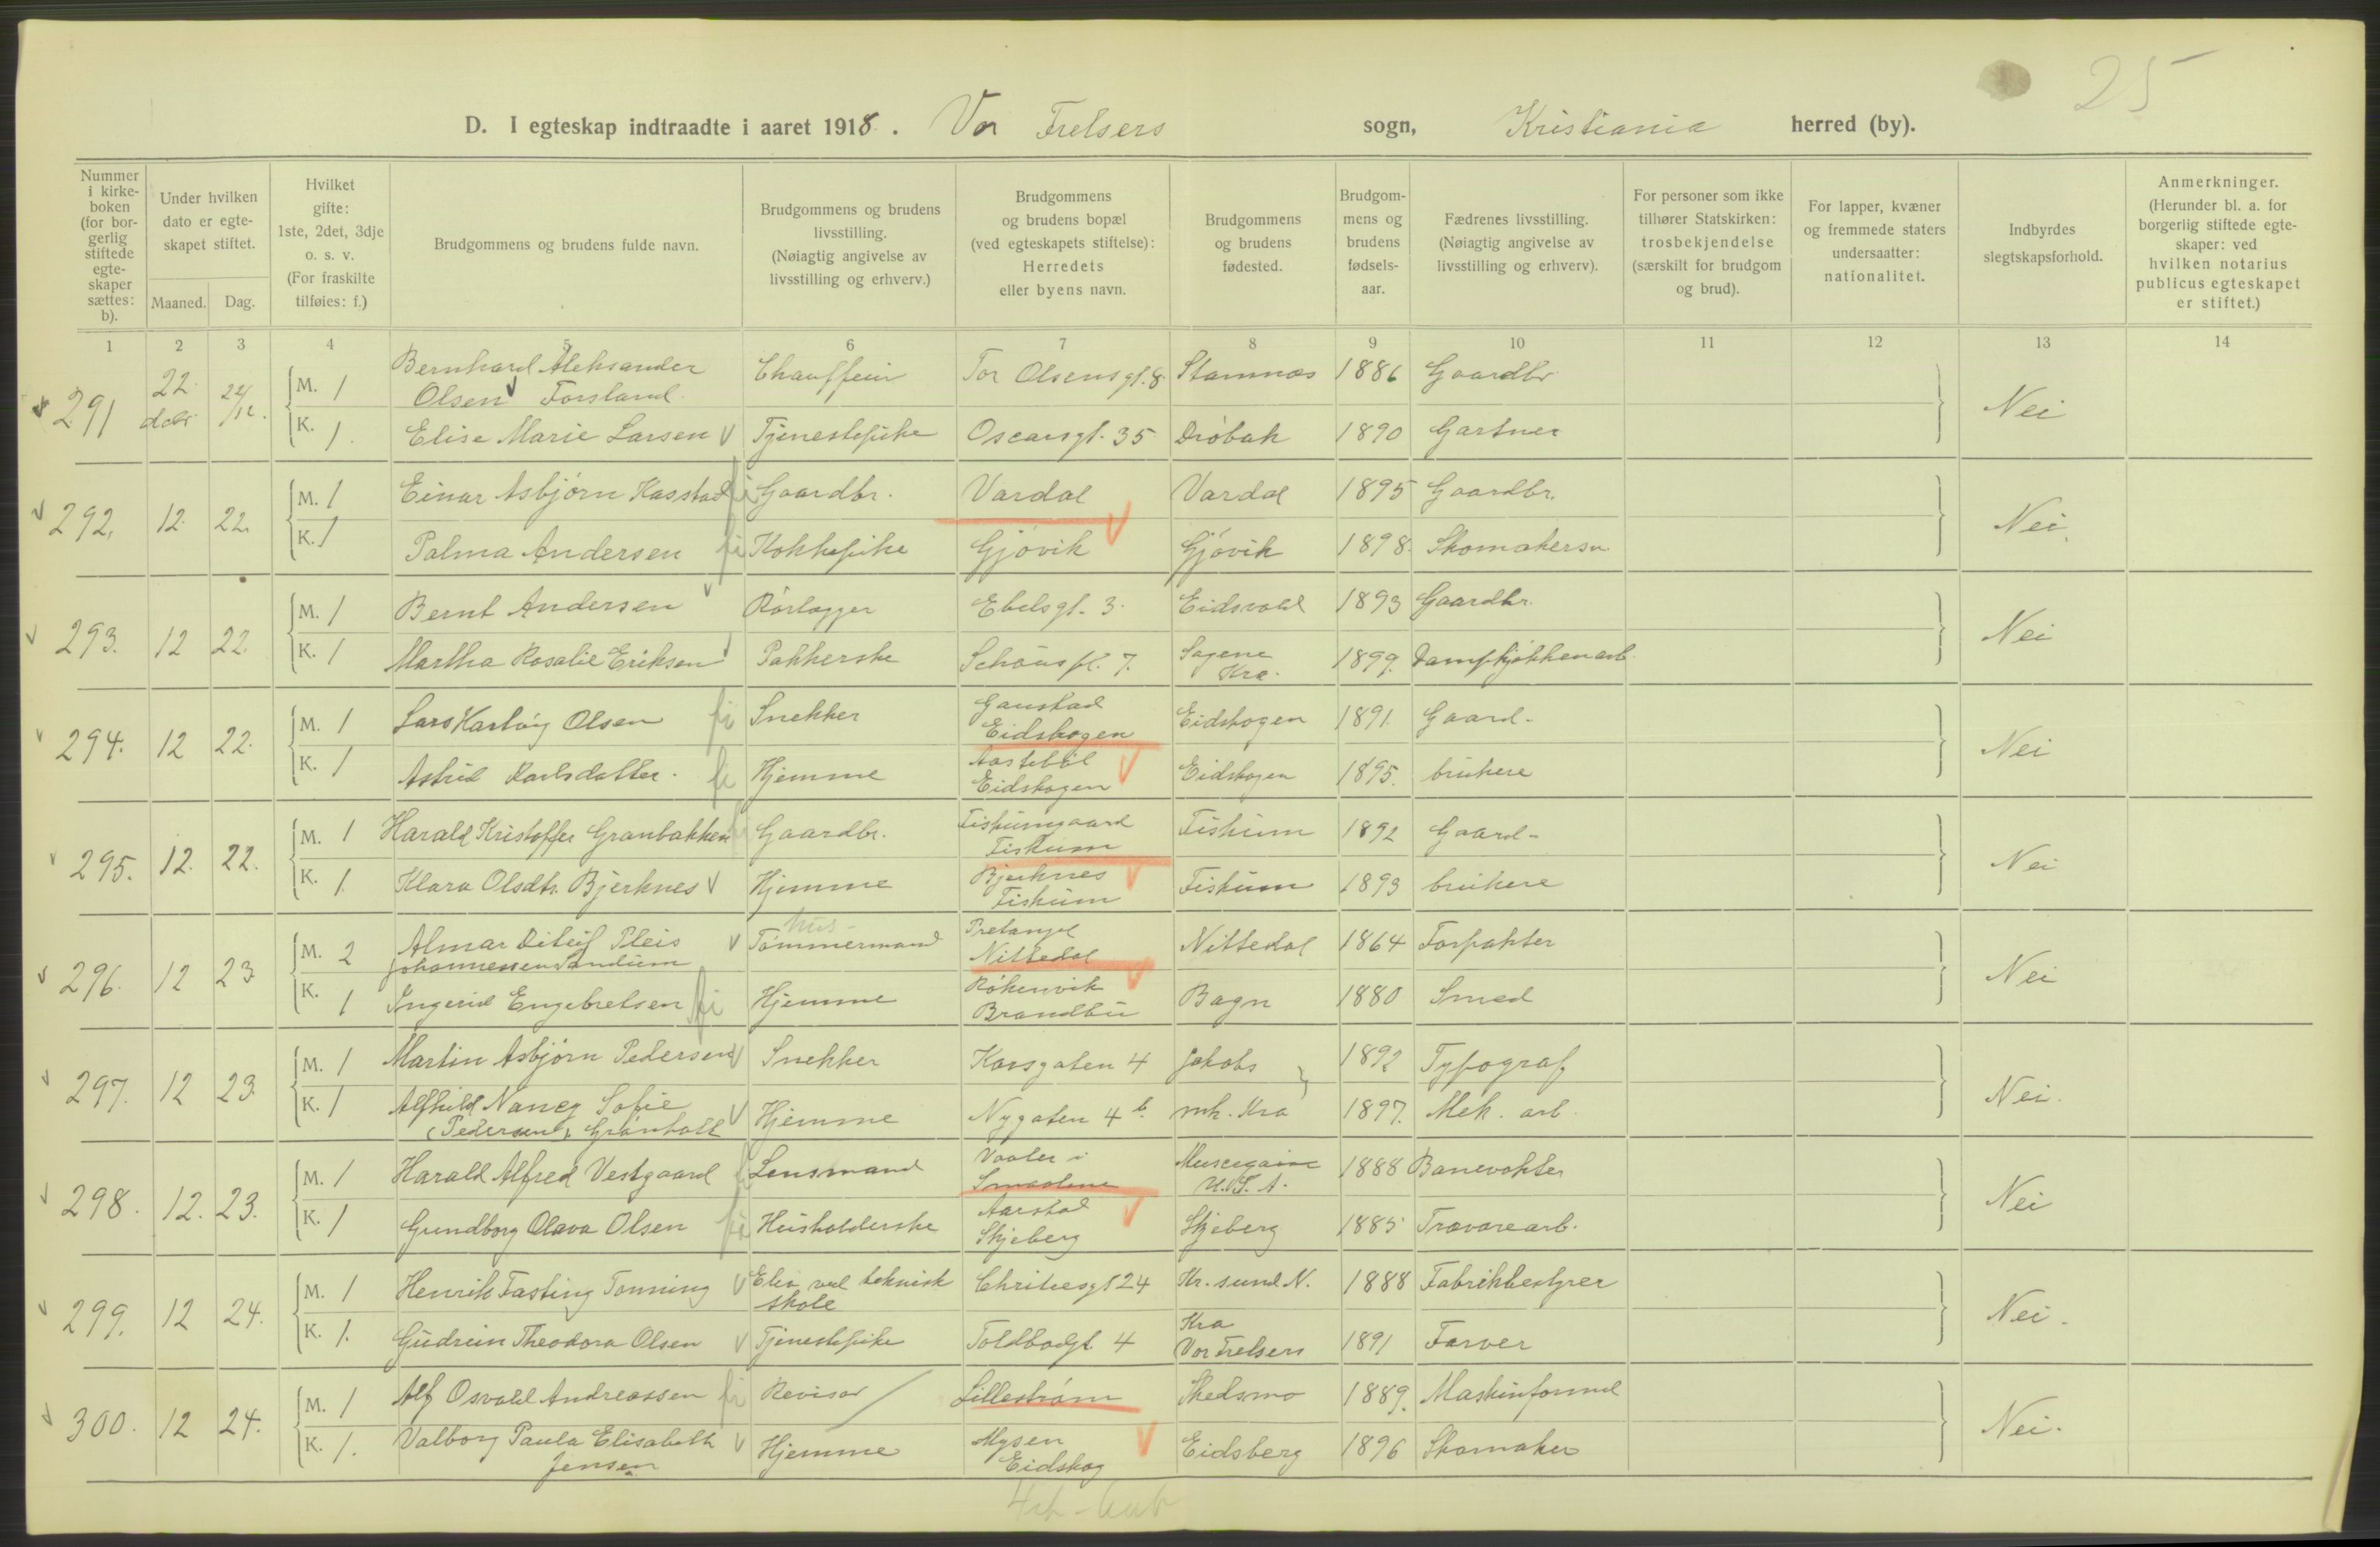 25
D. I egteskap indtraadte i aaret 1918. Vor Frelsers sogn, Kristiania herred (by).
Nummer i kirkeboken (for borgerlig stiftede egteskaper sættes: b).
Under hvilken dato er egteskapet stiftet.
Maaned. Dag.
Hvilket gifte: 1ste, 2det, 3dje o. s. v. (For fraskilte tilføies: f.)
Brudgommens og brudens fulde navn.
Brudgommens og brudens livsstilling. (Nøiagtig angivelse av livsstilling og erhverv.)
Brudgommens og brudens bopæl (ved egteskapets stiftelse): Herredets eller byens navn.
Brudgommens og brudens fødested.
Brudgommens og brudens fødselsaar.
Fædrenes livsstilling. (Nøiagtig angivelse av livsstilling og erhverv).
For personer som ikke tilhører Statskirken: trosbekjendelse (særskilt for brudgom og brud).
For lapper, kvæner og fremmede staters undersaatter: nationalitet.
Indbyrdes slegtskapsforhold.
Anmerkninger. (Herunder bl. a. for borgerlig stiftede egteskaper: ved hvilken notarius publicus egteskapet er stiftet.)
1 2 3 4 5 6 7 8 9 10 11 12 13 14
291 22 debr 22/12. M. 1 Bernhard Aleksander Olsen Forsland Chauffeur Tor Olsensgt. 8 Stamnes 1886 Gaardbr. Nei
K. 1. Elise Marie Larsen Tjenestepike Oscarsgt. 35 Drøbak 1890 Gartner
292. 12. 22. M. 1 Einar Asbjørn Kasstad Gaardbr. Vardal Vardal 1895 Gaardbr. Nei.
K. 1 Palma Andersen Kokkepike Gjøvik Gjøvik 1898. Skomakersv.
293. 12 22. M. 1 Bernt Andersen Rørlægger Ebelsgt. 3. Eidsvold 1893 Gaardbr. Nei
K. 1 Martha Rosalie Eriksen Pakkerske Schouspl. 7. Sagene Kra. 1899. Dampkjøkkenarb.
294. 12 22. M. 1 Lars Hartvig Olsen Snekker Gaustad Eidskogen Eidskogen 1891. Gaard- Nei
K. 1 Astrid Karlsdatter. Hjemme Aastebøl Eidskogen Eidskogen 1895. brukere
295. 12. 22. M. 1 Harald Kristoffer Granbakken Gaardbr. Fiskumgaard Fiskum Fiskum 1892 Gaard- Nei
K. 1. Klara Olsdtr. Bjerknes Hjemme Bjerknes Fiskum Fiskum 1893 brukere
296. 12 23 M. 2 Almar Ditleif Pleis Johannessen Sandum hus- Tømmermand Pretangel Nittedal Nittedal 1864 Forpakter Nei
K. 1 Ingerid Engebretsen Hjemme Røkenvik Brandbu Bagn 1880 Smed
297. 12 23. M. 1 Martin Asbjørn Pedersen Snekker Korsgaten 4 Jakobs 1892 Typograf Nei.
K. 1 Alfhild Nancy Sofie (Pedersen) Grønholt Hjemme Nygaten 4 b. mk. Kra 1897. Mek. arb.
298. 12. 23. M. 1 Harald Alfred Vestgaard Lensmand Vaaler i Smaalene U.S.A. 1888 Banevokter Nei
K. 1 Gundborg Olava Olsen Husholderske Skjeberg Skjeberg 1885 Trævarearb.
299. 12 24. M. 1 Henrik Fasting Tonning Elev ved teknisk skole Christiesgt 24 Kr.sund N. 1888 Fabrikbestyrer Nei.
K. 1. Gudrun Theodora Olsen Tjenestepike Toldbodgt 4 Kra Vor Frelsers 1891 Farver
300. 12 24. M. 1 Alf Osvald Andreassen Revisor Lillestrøm Skedsmo 1889. Maskinformd Nei.
K. 1. Valborg Paula Elisabeth Jensen Hjemme Mysen Eidskog Eidsberg 1896 Skomaker